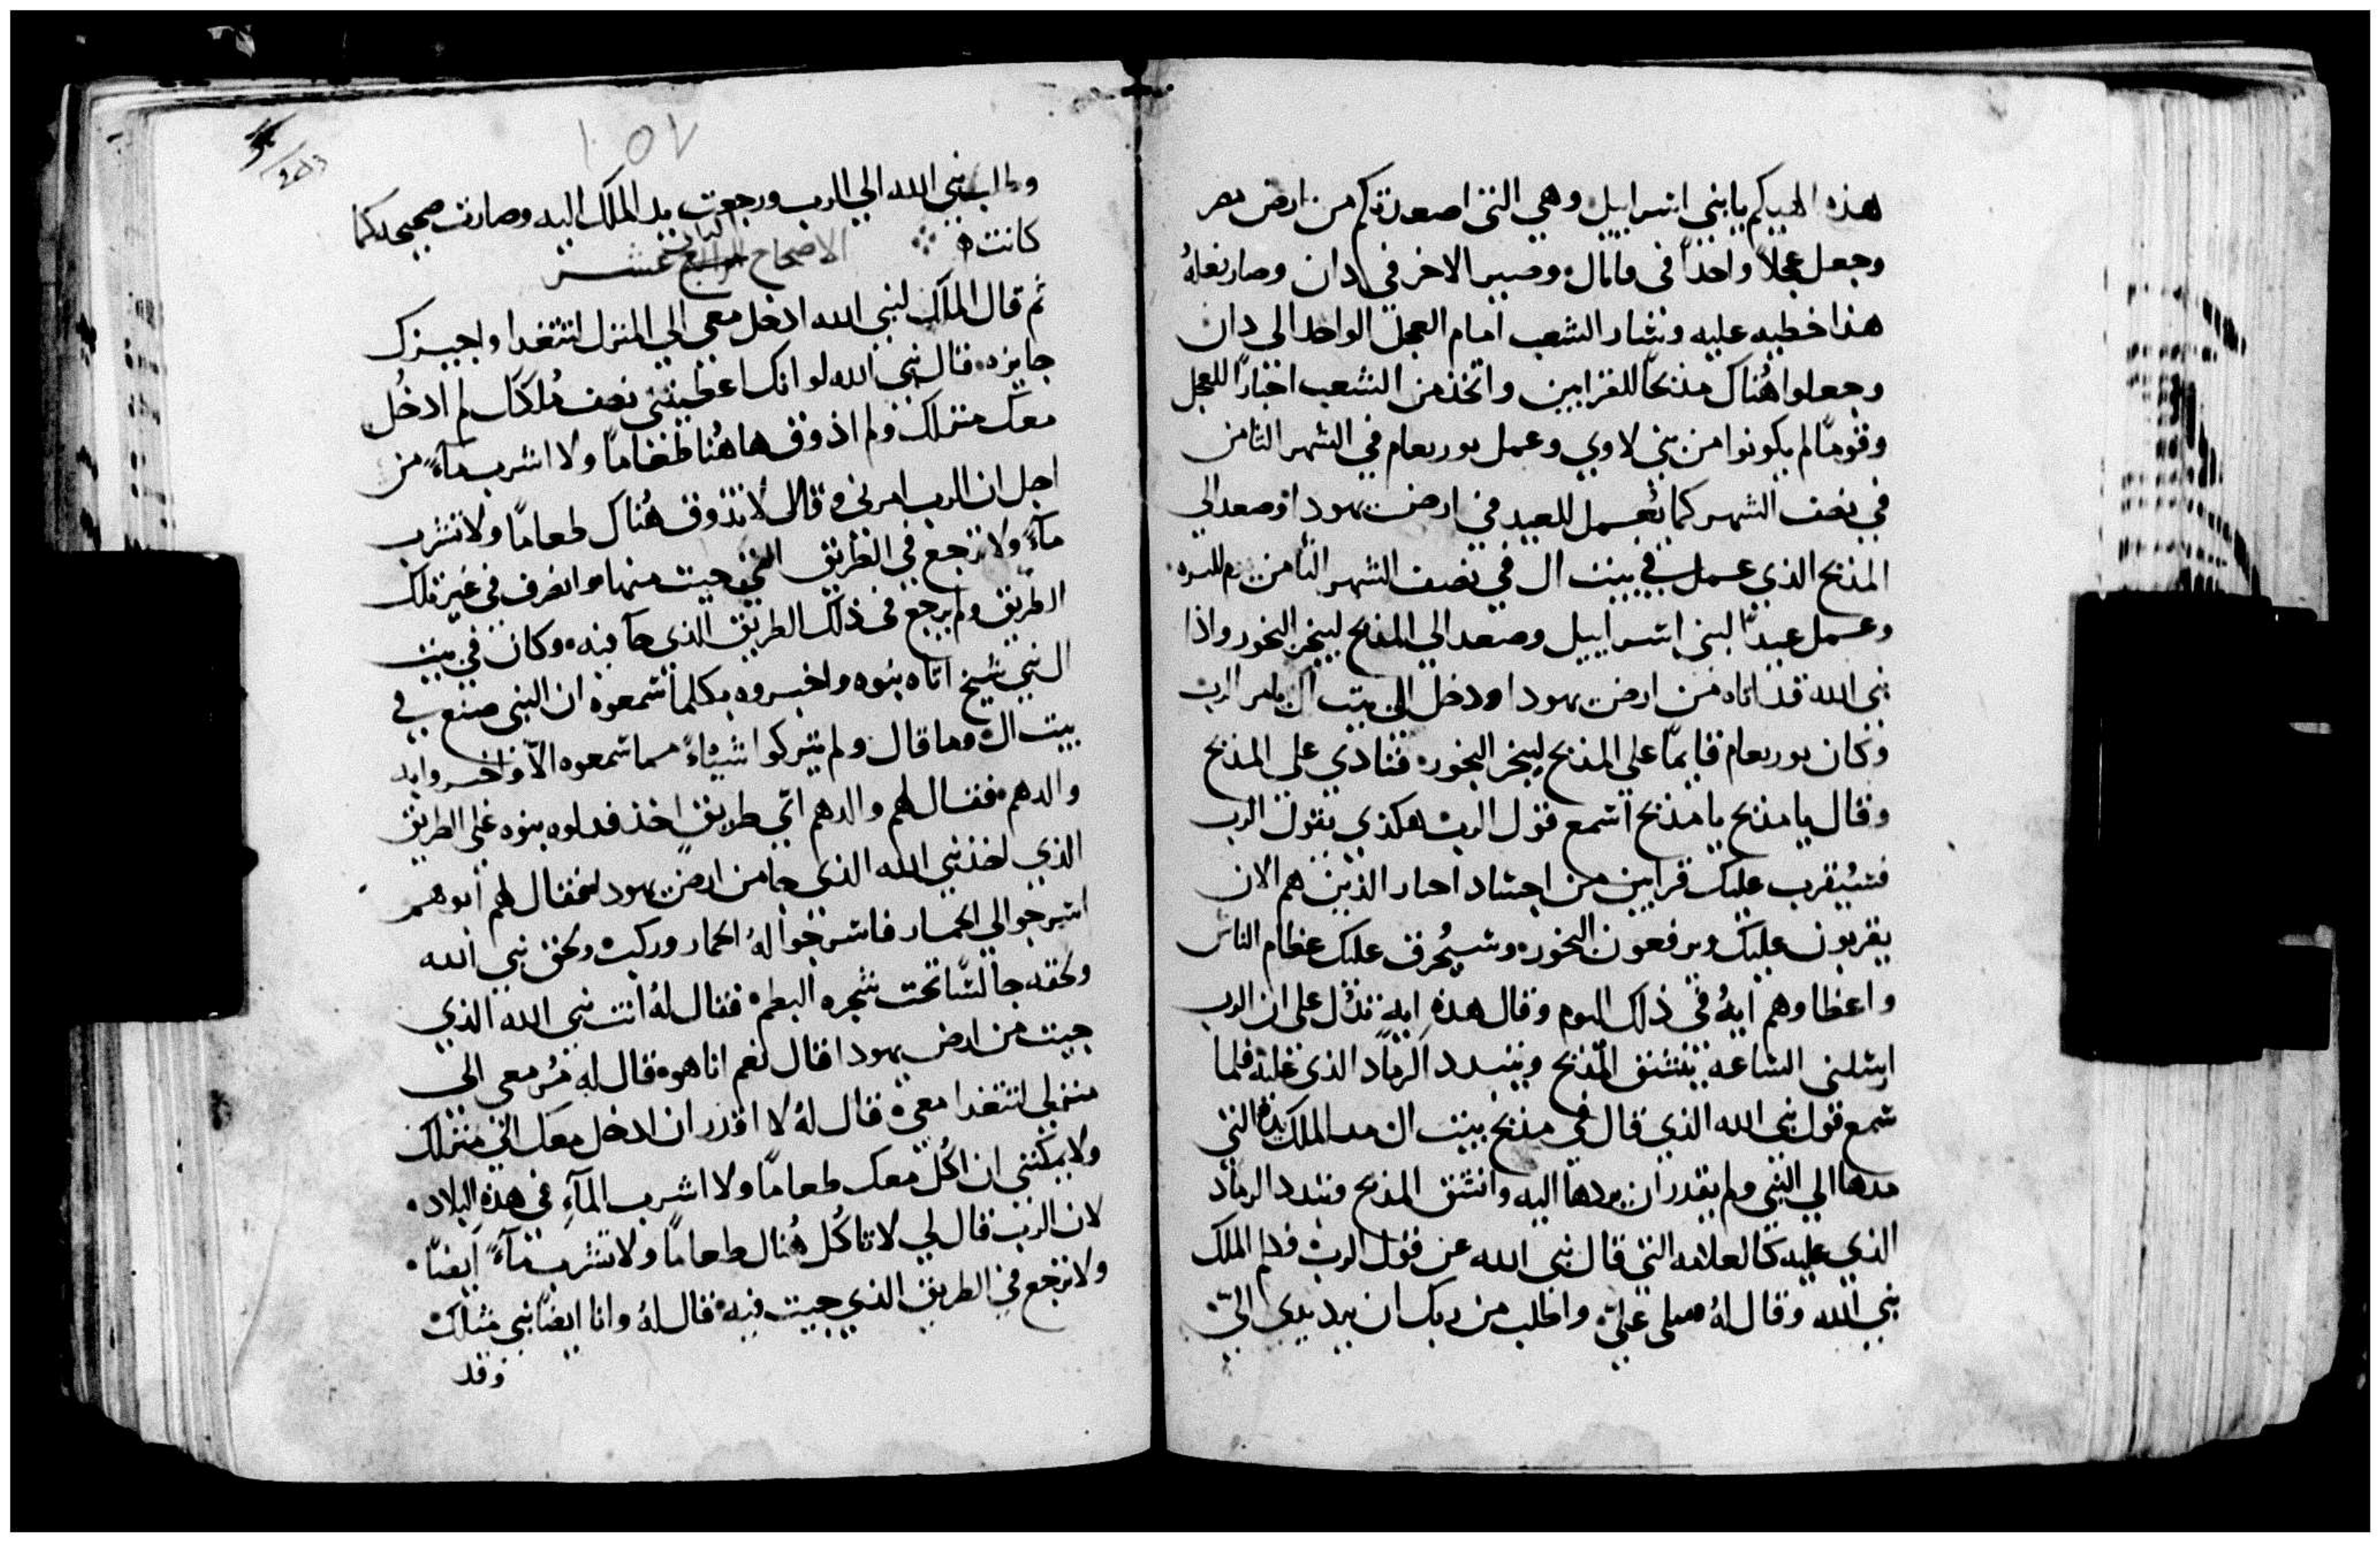 هذه الهيكم يا بني اسراييل وهي التي اصعدتكم من ارض مصر
وجعل عجلاً واحداً في وصير الاخر في دان وصار بفعله
هذا خطيه عليه وسار الشعب امام العجل الواحد الى دان
وجعلوا هُناك مذبحاً للقرابين واتخذ من الشعب احباراً للعجل
وقوماً لم يكونوا من بني لاوي وعمل يوربعام في الشهر الثامن
في نصف الشهر كما يُعمل للعيد في ارض يهودا وصعد الي
المذبح الذي عمل في بيت ال في نصف الشهر الثامن
وعمل عيداً لبني اسراييل وصعد الي المذبح ليبخر البخور واذا
نبي الله قد اتاه من ارض يهودا ودخل الى بيت ال بامر الرب
وكان يوربعام قايماً علي المذبح ليبخر البخور فنادي علي المذبح
وقال يا مذبح يا مذبح اسمع قول الرب هكذي يقول الرب
فسيُقرب عليك قرابين من اجساد احبار الذين هم الان
يقربون عليك ويرفعون البخور وسيُحرق عليك عظام الناس
واعطاهم ايهُ في ذلك اليوم وقال هذهِ ايه تدُل على ان الرب
ارسلني الساعه ينشق المذبح ويتبدد الرماد الذي عليه فلما
سمع قول نبي الله الذي قال في مذبح بيت ال مد الملك يده التي
مدها الي النبي ولم يقدر ان يردها اليه وانشق المذبح وتبدد الرماد
الذي عليه كالعلامه التي قال نبي الله عن قول الرب الملك
نبي الله وقال لهُ صلى عليّ واطلب من ربك ان يرد يدى اليّ
١٥٧
وطلب نبي الله الي الرب ورجعت يد الملك اليه وصارت صحيحه كما
كانت
الاصحاح الرابع عشر
ثم قال الملك لنبي الله ادخل معي الي المنزل لنتغدا واجيزك
جايزه قال نبي الله لو انك اعطيتني نصف مُلكك لم ادخُل
معك منزلك ولم اذوق هاهُنا طعاماً ولا اشرب مآءً من
اجل ان الرب امرني وقال لا تذوق هُناك طعاماً ولا تشرب
مآءً ولا ترجع في الطريق التي جيت منها وانصرف في غير تلك
الطريق ولم يرجع في ذلك الطريق الذي جآ فيه وكان في بيت
ال نبي شيخ اتاه بنوه واخبروه بكلما سمعوه ان النبي صنع في
بيت ال وما قال ولم يتركوا شيئاً مما سمعوه الّا واخبروا به
والدهم فقال لهم والدهم اي طريق اخذ فدلوه بنوه علي الطريق
الذي اخذ نبي الله الذي جا من ارض يهودا فقال لهم ابوهم
اسرجوا لي الحمار فاسرجوا لهُ الحمار وركب ولحق نبي الله
ولحقه جالسًا تحت شجره البطم فقال لهُ انت نبي الله الذي
جيت من ارض يهودا قال نعم انا هو قال له مُر معي الى
منزلي لنتغدا معي قال لهُ لا اقدر ان ادخل معك الي منزلك
ولا يمكنني ان اكُل معك طعاماً ولا اشرب المآءِ في هذهِ البلاد
لان الرب قال لي لا تاكُل هُناك طعاماً ولا تشرب مآءً ايضاً
ولا ترجع في الطريق الذي جيت فيه قال لهُ وانا ايضاً نبي مثلك
وقد